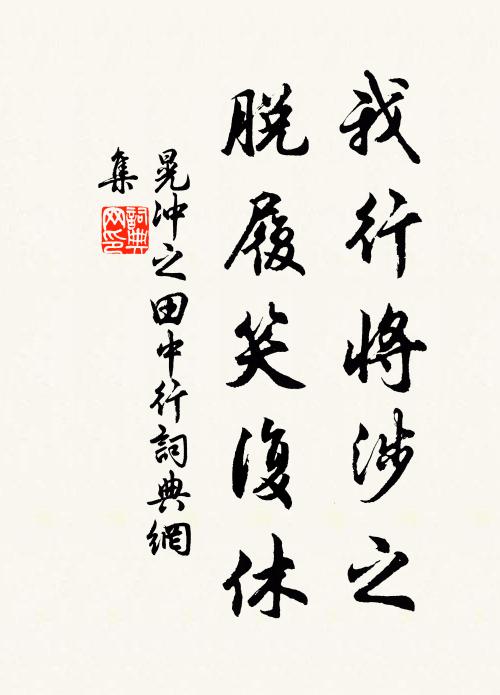 我行將涉之
脱履笑復休
晁沖之田中行詞典網
集
詞典
网印